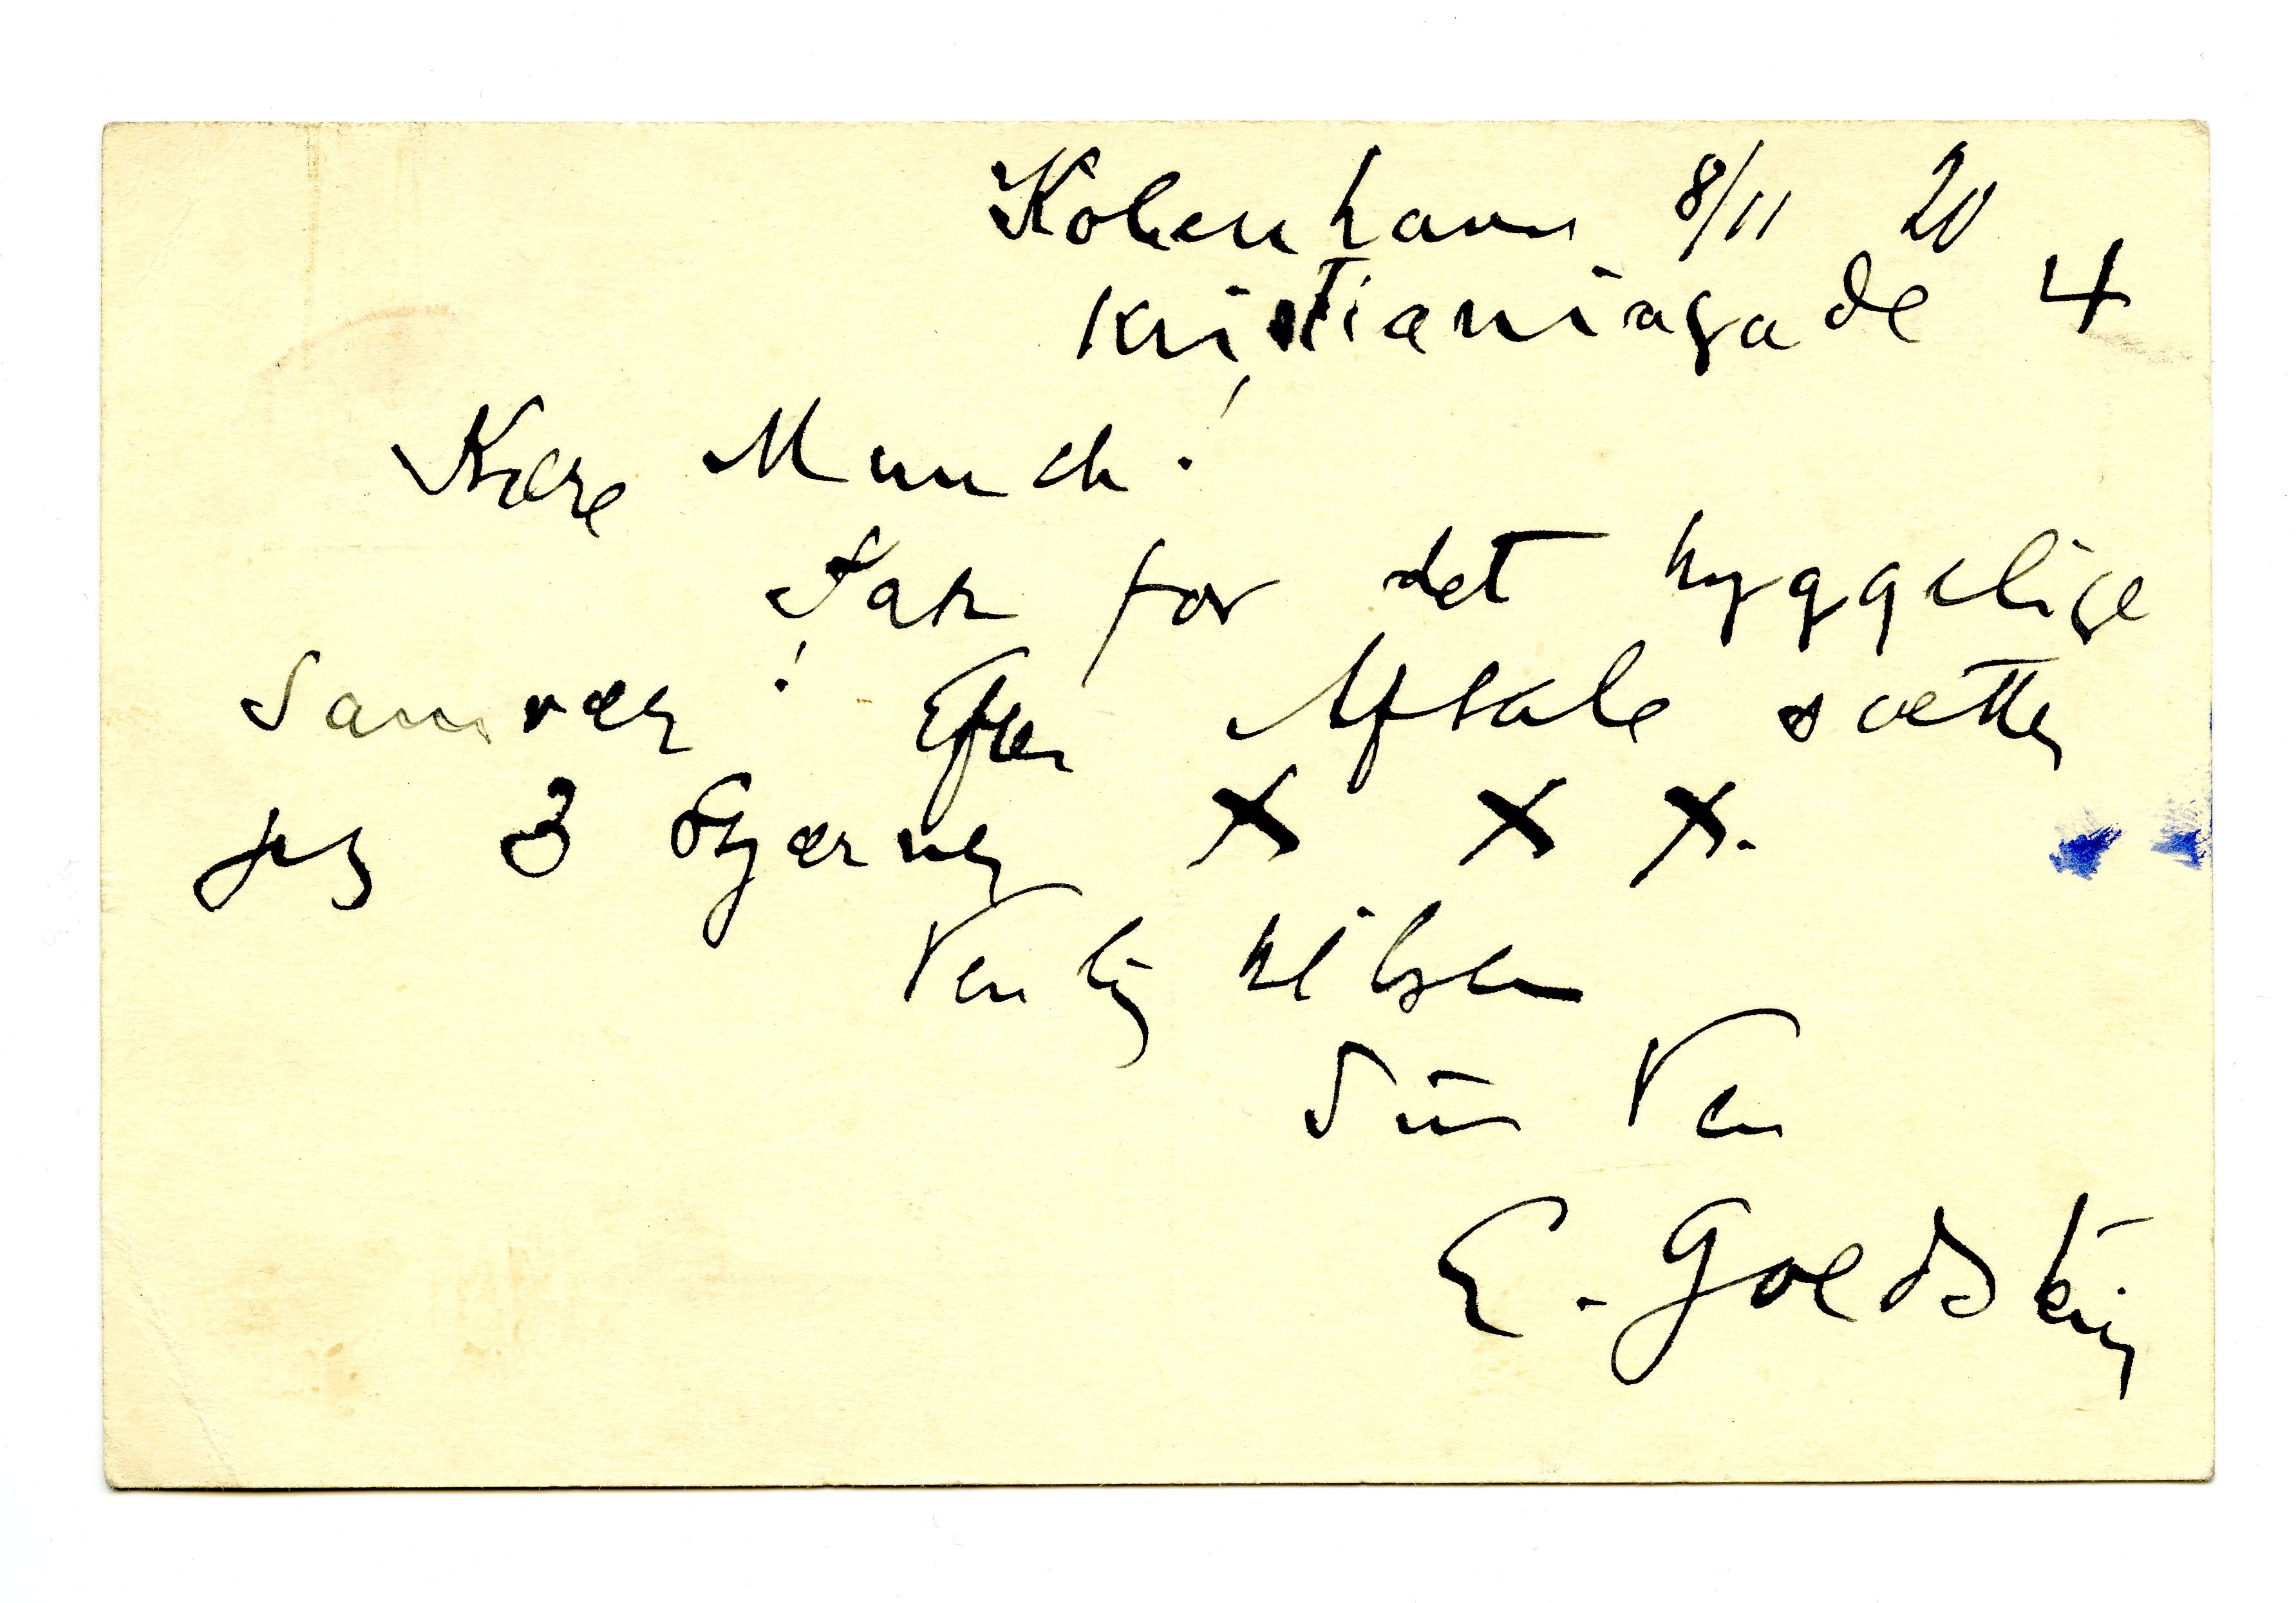 København 8/11 20
Kristianiagade 4
Kære Munch!
Tak for det hyggelige
Samvær! Efter Aftale sætter
jeg 3 Stjerner X X X.
Venlig hilsen
Din Ven
E. Goldstein